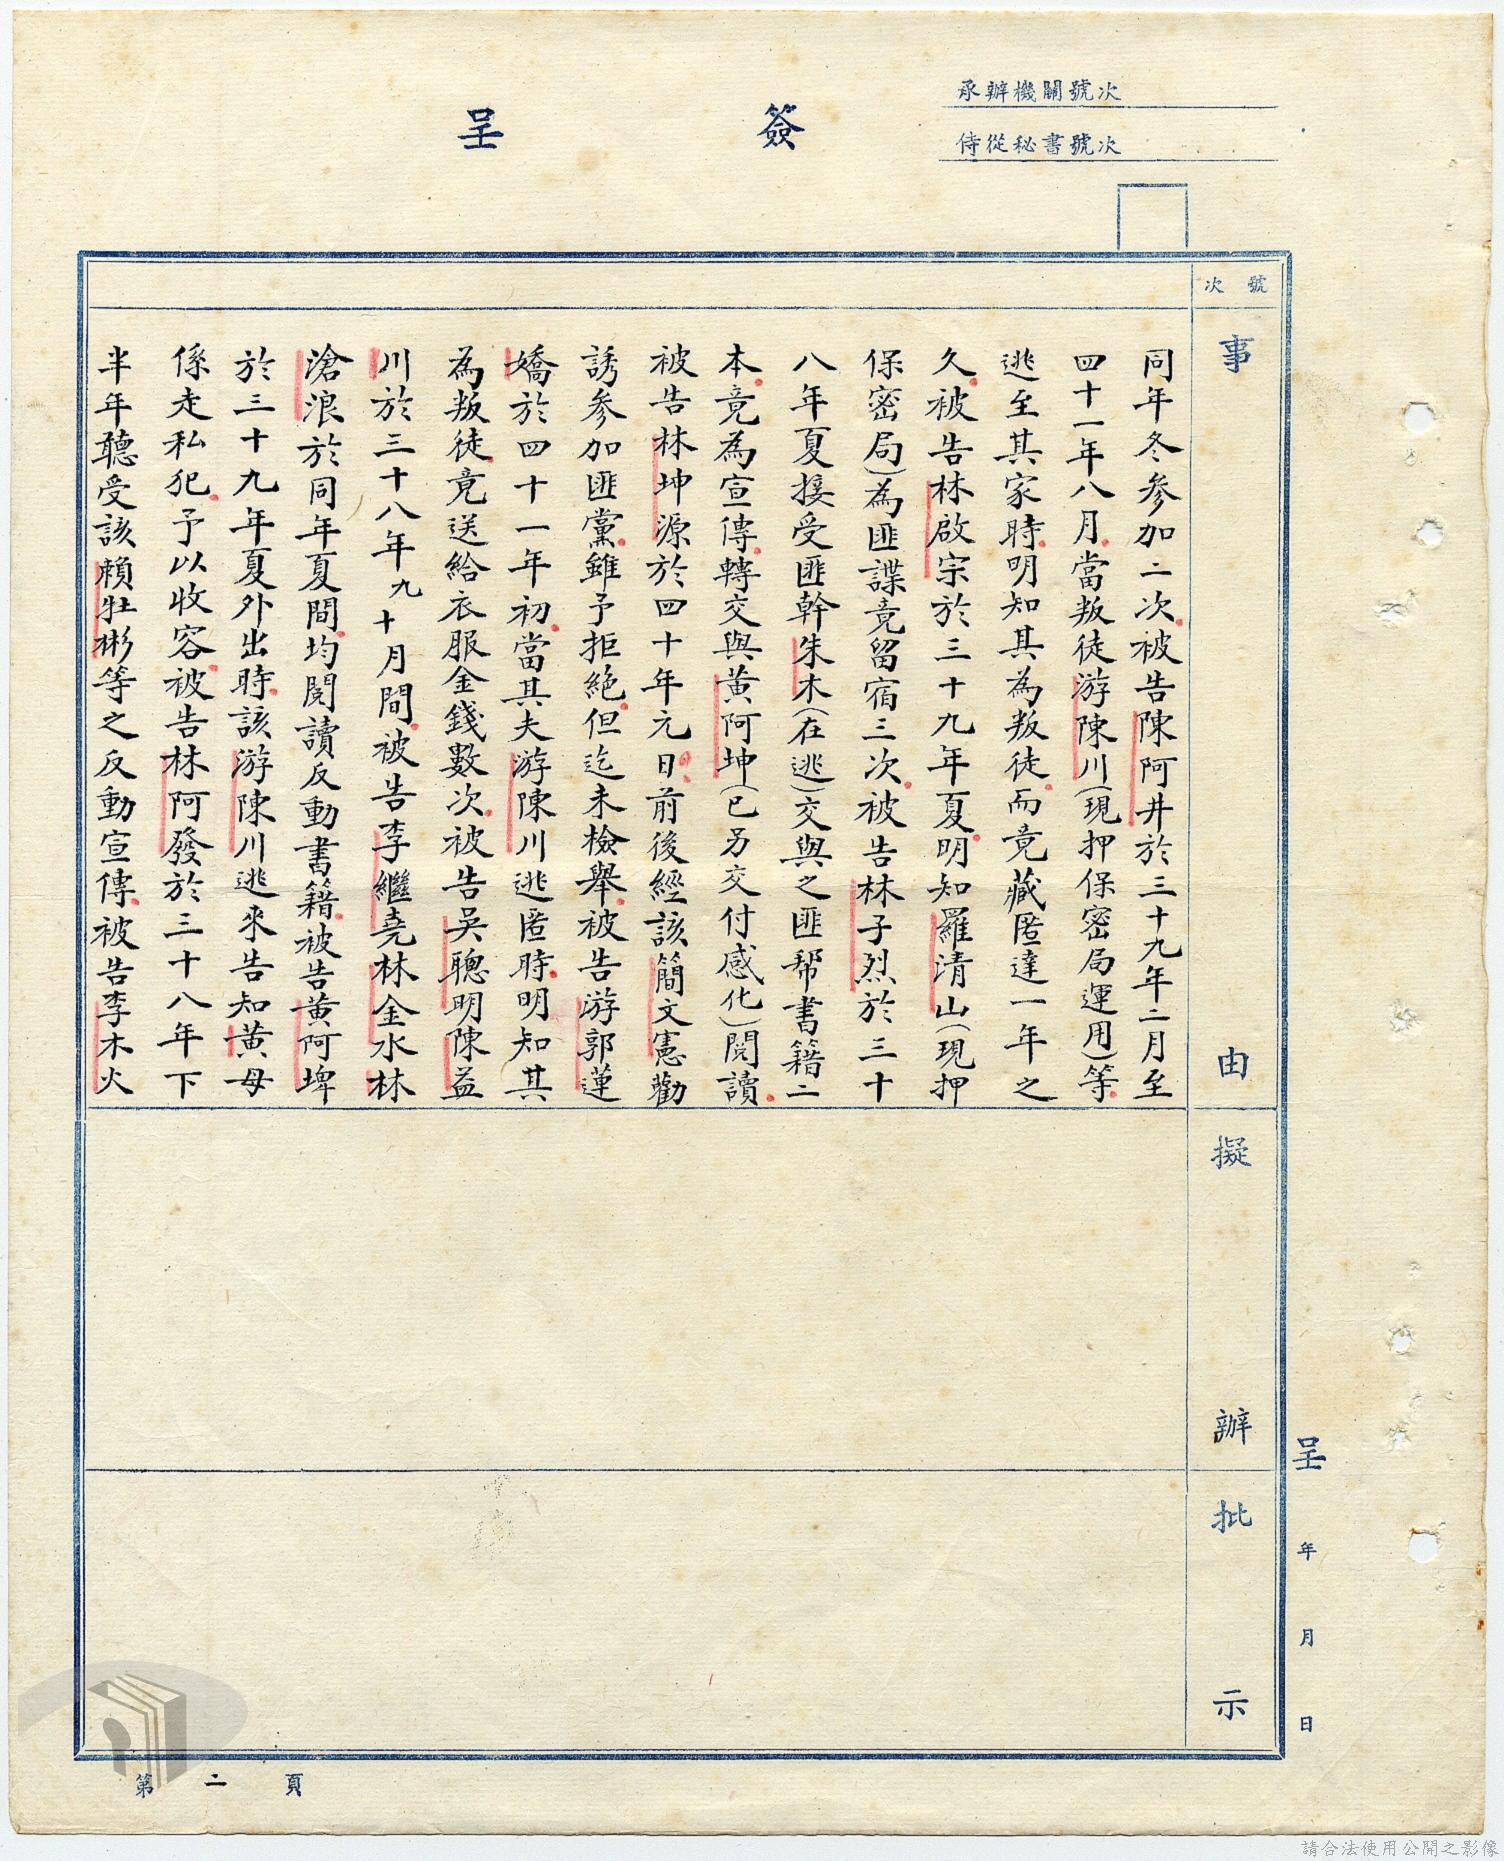 承辦機關號次
侍從秘書號次
簽呈
號次
事由
擬辦
批示
同年冬參加二次被告陳阿井於三十九年二月至
四十一年八月當叛徒游陳川(現押保密局運用)等
逃至其家時明知其為叛徒而竟藏匿達一年之
久被告林啟宗於三十九年夏明知羅清山(現押
保密局)為匪諜竟留宿三次被告林子烈於三十
八年夏接受匪幹朱木(在逃)交與之匪幫書籍二
本竟為宣傳轉交與黃阿坤(已另交付感化)閱讀
被告林坤源於四十年元日前後經該簡文憲勸
誘參加匪黨雖予拒絕但迄未檢舉被告游郭蓮
嬌於四十一年初當其夫游陳川逃匿時明知其
為叛徒竟送給衣服金錢數次被告吳聰明陳益
川於三十八年九十月間被告李繼堯林金水林
滄浪於同年夏間均閱讀反動書籍被告黃阿埤
於三十九年夏外出時該游陳川逃來告知黃母
係走私犯予以收容被告林阿發於三十八年下
半年聽受該賴牡彬等之反動宣傳被告李木火
呈 年 月 日
第二頁
請合法使用公開之影像